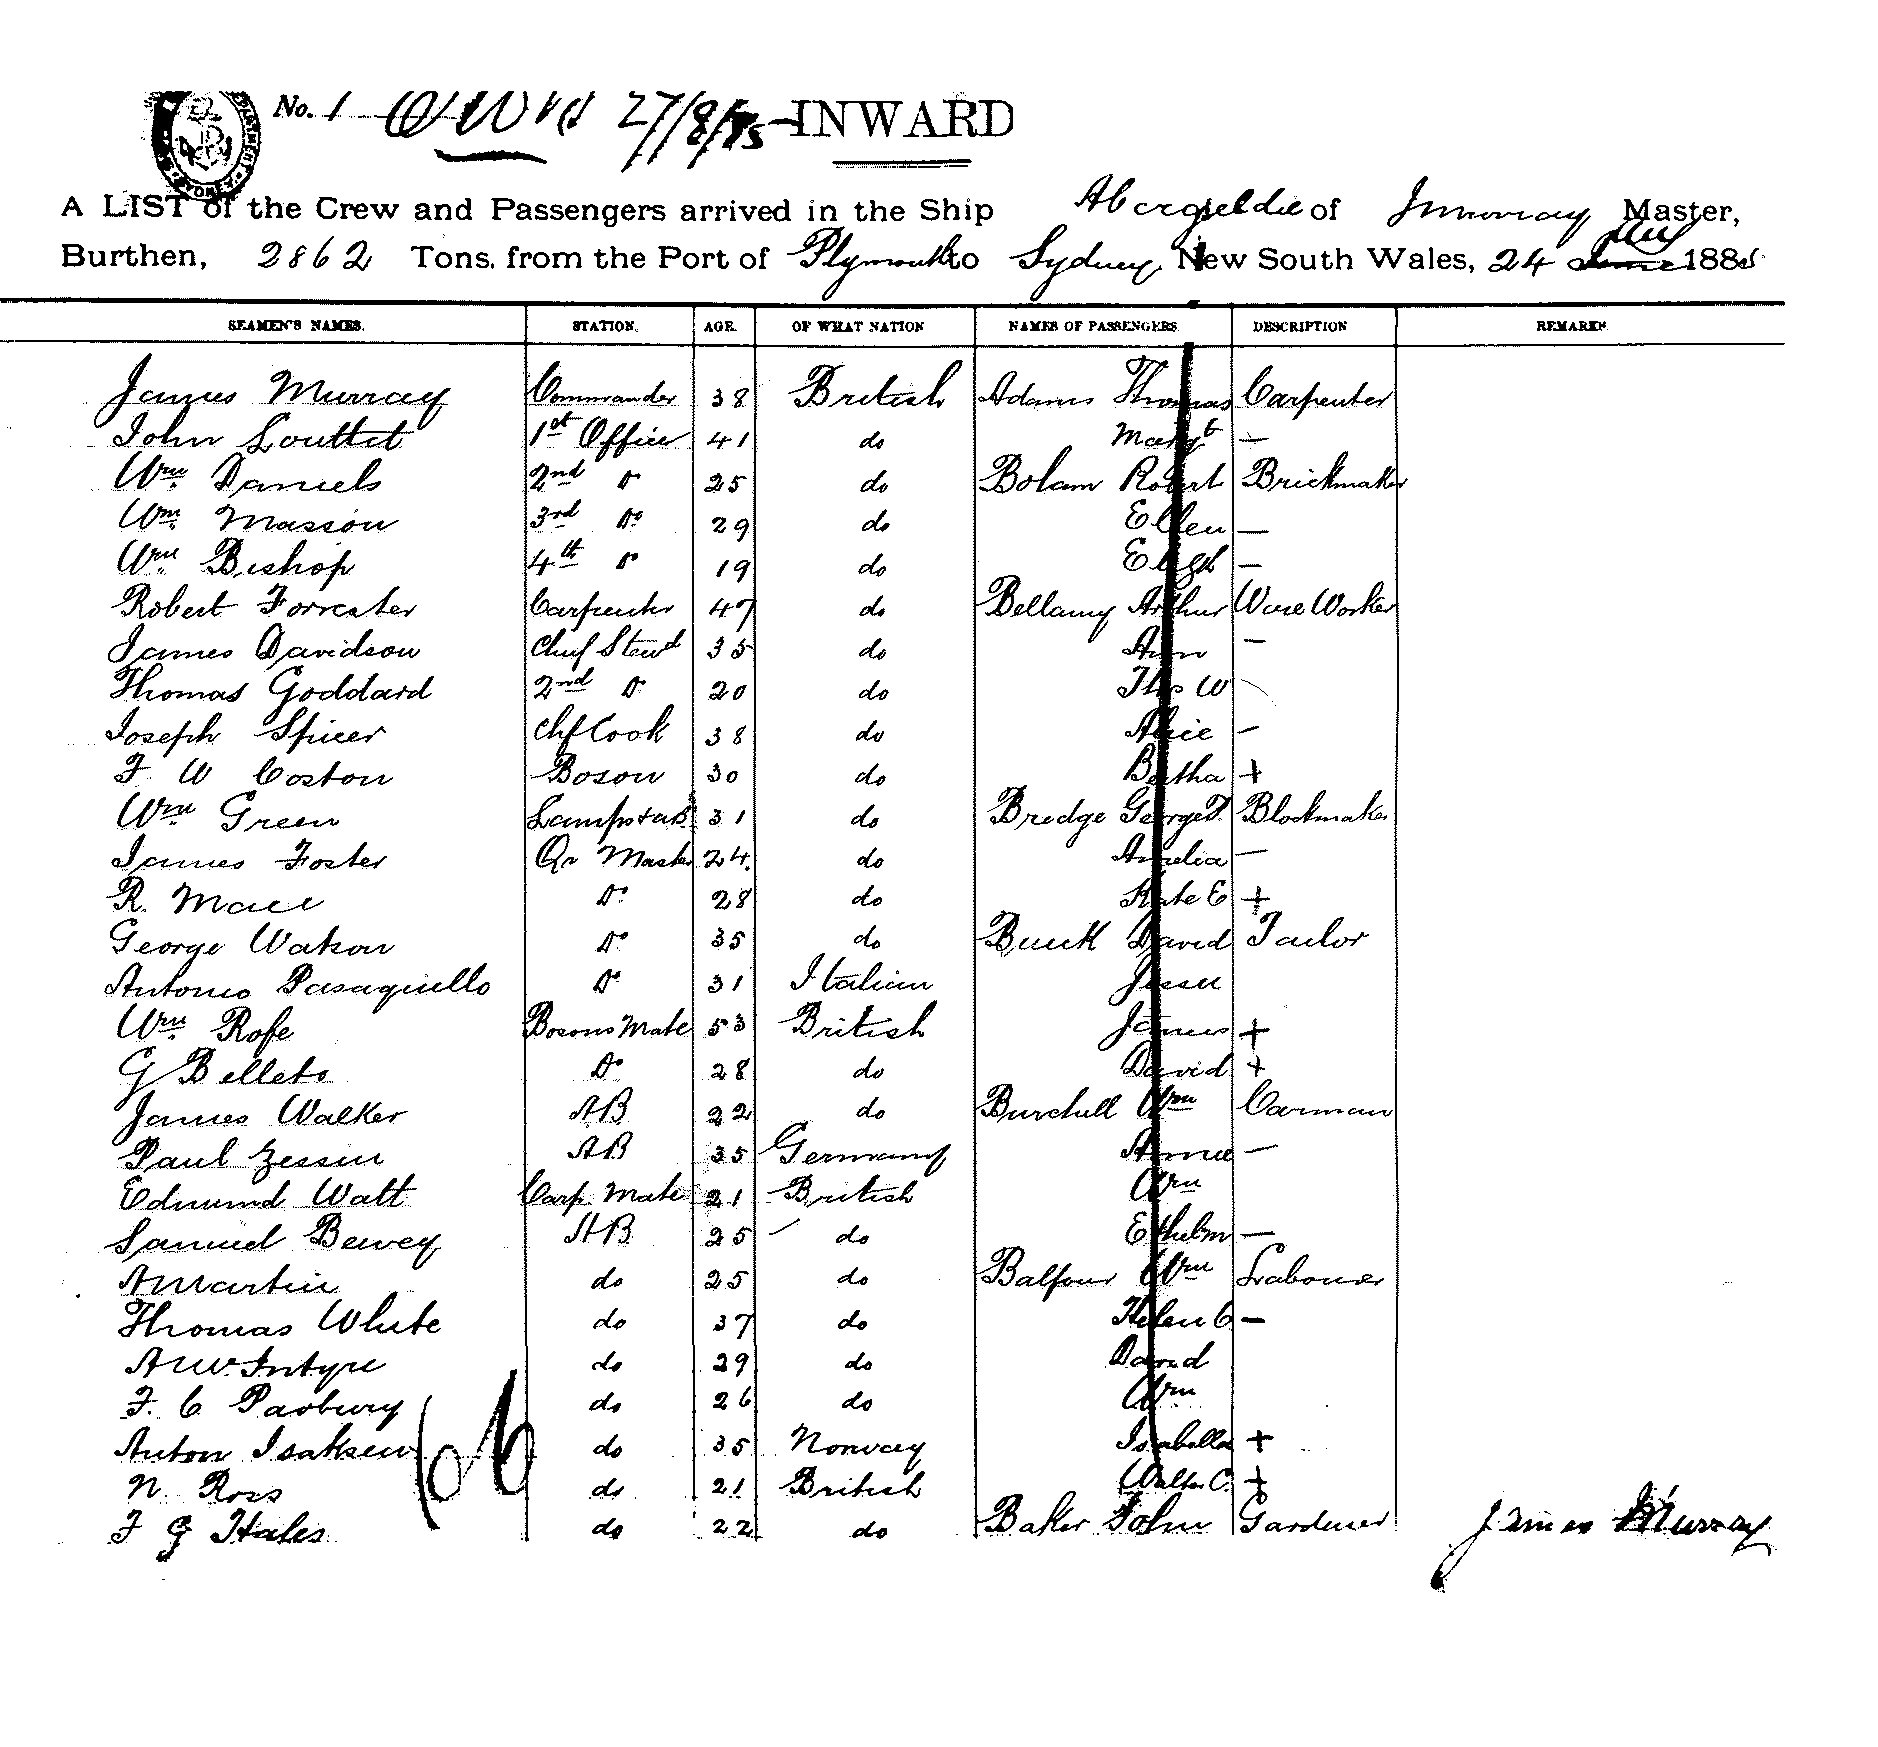 No. 1 27/8/85 INWARD
A LIST of the Crew and Passengers arrived in the Ship Abergeldie of J Murray Master,
Burthen, 2862 Tons, from the Port of Plymouth to Sydney, New South Wales, 24 July 1885
SEAMEN'S NAMES. STATION. AGE. OF WHAT NATION NAMES OF PASSENGERS. DESCRIPTION REMARKS
James Murray Commander 38 British Adams Thomas Carpenter
John Louttit 1st Officer 41 do Margt —
Wm Daniels 2nd Do 25 do Bolam Robert Brickmaker
Wm Masson 3rd Do 29 do Ellen —
Wm Bishop 4th Do 19 do Elizh —
Robert Forrester Carpenter 47 do Bellamy Arthur Wire Worker
James Davidson Chief Stewd 35 do Ann —
Thomas Goddard 2nd Do 20 do Thos W
Joseph Spicer Chf Cook 38 do Alice —
F W Coston Boson 30 do Bertha +
Wm Green Lamps 31 do Bredge George T. Blockmaker
James Foster Qr Master 24 do Amelia —
R. Mace Do 28 do Kate E +
George Watson Do 35 do Buick David Tailor
Antonio Pasaquiello Do 31 Italian Jessie
Wm Rofe Bosons Mate 53 British James +
G Bellets Do 28 do David +
James Walker AB 22 do Burchell Wm Carman
Paul Zessin AB 35 Germany Annie —
Edmund Watt Carp. Mate 21 British Wm
Samuel Bewey AB 25 do Ethelm —
A Martin do 25 do Balfour Wm Labourer
Thomas White do 37 do Helen C —
A McIntyre do 29 do David
F. C Parbury do 26 do Wm
Anton Isaksen do 35 Norway Isabella +
N. Ross do 21 British Walter C. +
F G Hales do 22 do Baker John Gardener James Murray